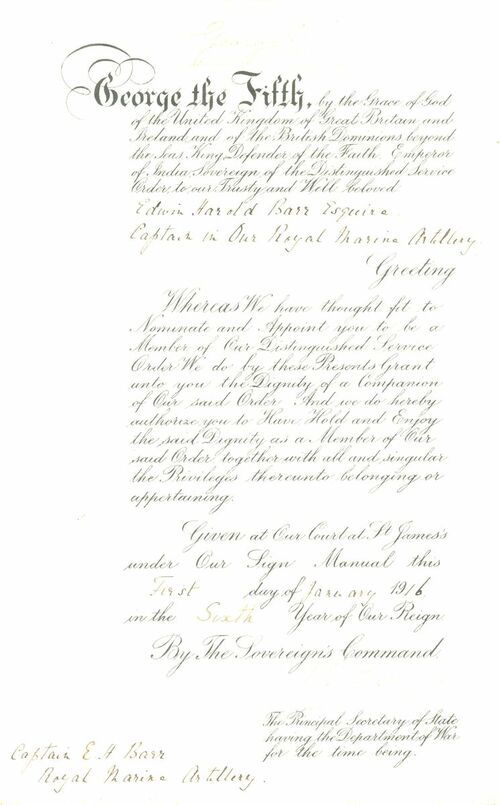 George the Fifth, by the Grace of God
of the United Kingdom of Great Britain and
Ireland and of the British Dominions beyond
the Seas King, Defender of the Faith, Emperor
of India, Sovereign of the Distinguished Service
Order, to our Trusty and Well beloved
Edwin Harold Barr Esquire
Captain in Our Royal Marine Artillery
Greeting
Whereas We have thought fit to
Nominate and Appoint you to be a
Member of Our Distinguished Service
Order We do by these Presents Grant
unto you the Dignity of a Companion
of Our said Order And we do hereby
authorize you to Have Hold and Enjoy
the said Dignity as a Member of Our
said Order, together with all and singular
the Privileges thereunto belonging or
appertaining.
Given at Our Court at St James's
under Our Sign Manual this
First day of January 1916
in the Sixth Year of Our Reign
By The Sovereign's Command.
The Principal Secretary of State
having the Department of War
for the time being.
Captain E. H Barr
Royal Marine Artillery.